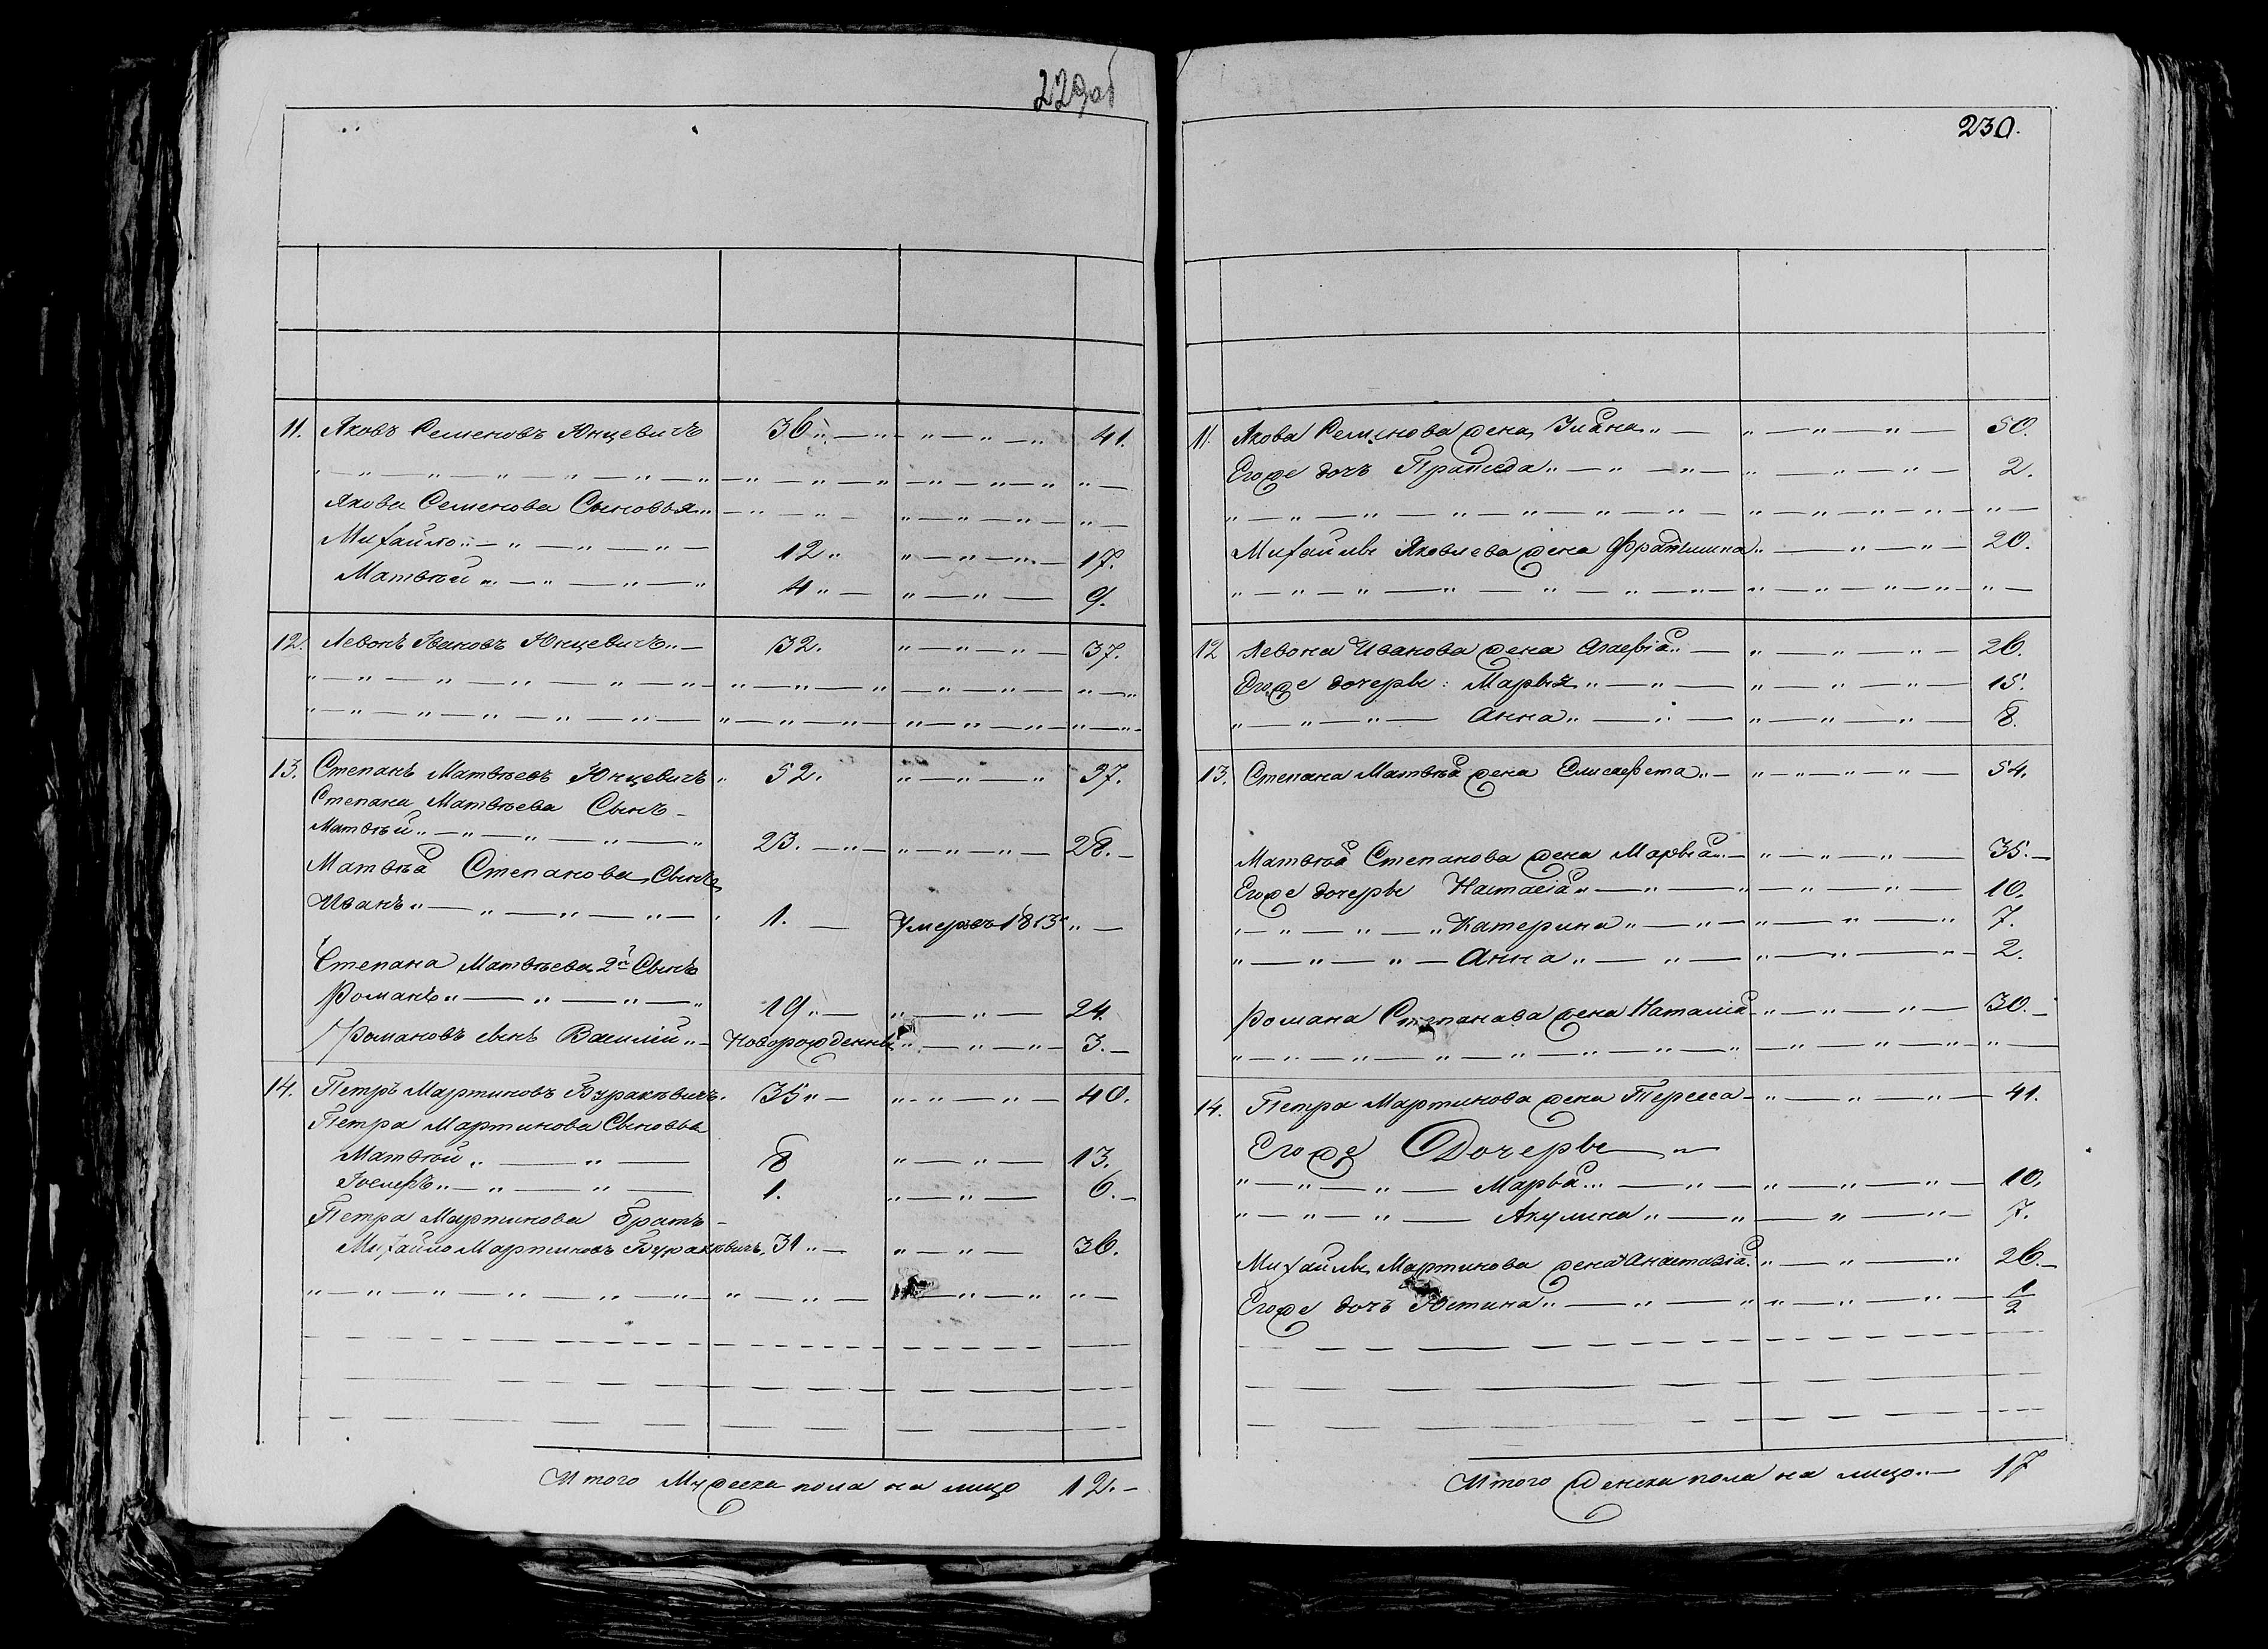 229об
11. Яковъ Семеновъ Юнцевичъ 36 „ — „ — „ — „ — „ 41.
„ — „ — „ — „ — „ — „ — „ — „ — „ — „ — „ — „ — „ —
Якова Семенова Сыновья „ — „ — „ — „ — „ — „ — „ —
Михайло „ — „ — „ — „ — 12 „ „ — „ — „ — 17.
Матвѣй „ — „ — „ — „ 4 „ — „ — „ — 9.
12. Левонъ Ивановъ Юнцевичъ „ — 32. „ — „ — „ — 37.
„ — „ — „ — „ — „ — „ — „ — „ — „ — „ — „ — „ — „
„ — „ — „ — „ — „ — „ — „ — „ — „ — „ — „ — „ — „
13. Степанъ Матвѣевъ Юнцевичъ „ 52. „ — „ — „ 37.
Степана Матвѣева Сынъ —
Матвѣй „ — „ — „ — „ — „ 23. — „ — „ — „ — „ — 28. —
Матвѣя Степанова Сынъ
Иванъ „ — „ — „ — „ — „ 1. — Умеръ въ 1813 „ —
Степана Матвѣева 2й Сынъ
Романъ „ — „ — „ — „ 19 „ — „ — „ — 24.
Романовъ сынъ Василій „ — Новорожденны „ — „ — „ — 3. —
14. Петръ Мартиновъ Буракѣвичъ. 35 „ — „ — „ — „ — 40.
Петра Мартинова Сыновья
Матвѣй „ — „ — 8 „ — „ — 13.
Іосифъ „ — „ — „ — 1. „ — „ — 6. —
Петра Мартинова братъ —
Михайло Мартиновъ Буракѣвичъ. 31 „ — „ — „ — 36.
„ — „ — „ — „ — „ — „ — „ — „ — „ — „ — „ — „ —
Итого Мужеска пола на лицо 12. —
230.
11. Якова Семенова жена Уліана „ — „ — „ — „ — 50.
Егоже дочъ Праписда „ — „ — „ — „ — „ — „ — 2.
„ — „ — „ — „ — „ — „ — „ — „ — „ — „ — „ — „ — „ —
Михайлы Яковлева жена Франтишка „ — „ — „ — 20.
„ — „ — „ — „ — „ — „ — „ — „ — „ — „ — „ — „ — „ —
12 Левона Иванова жена Агафія „ — „ — „ — „ — 26.
Егоже дочеры: Марыя „ — „ — „ — „ — „ — 15.
„ — „ — „ — Анна „ — „ — „ — „ — „ — 8.
13. Степана Матвѣя жена Елисафета „ — „ — „ — „ — „ — 54.
Матвѣя Степанова жена Марыя „ — „ — „ — „ — 35. —
Егоже дочеры Настасія „ — „ — „ — „ — „ — 10.
„ — „ — „ — „ Катерина „ — „ — „ — „ — „ 7.
„ — „ — „ — Анна „ — „ — „ — „ — „ — 2.
Романа Степанова жена Наталія — „ — „ — „ — 30. —
„ — „ — „ — „ — „ — „ — „ — „ — „ — „ — „ — „ —
14. Петра Мартинова жена Тереса — „ — „ — „ — 41.
Егоже Дочеры — „ —
„ — „ — „ — Марыя „ — „ — „ — „ — „ — 10.
„ — „ — „ — Акулина „ — „ — „ — „ — 7.
Михайлы Мартинова жена Анастазія „ — „ — „ 26. —
Егоже дочъ Юстина „ — „ — „ — „ — „ — 1/2
Итого Женска пола на лицо „ — 17